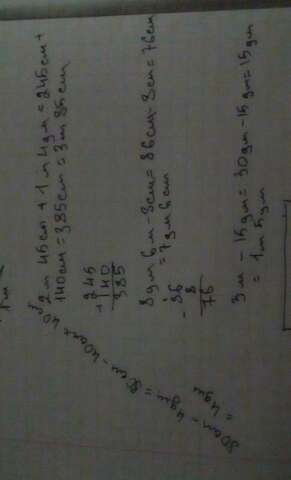 2 м 45 см + 1 м 4 дм = 245 см +
140 см = 385 см = 3 м 85 см
245
+
140
385
8 дм 6 м - 8 см = 86 см - 8 см = 76 см
= 7 дм 6 см
- 86
8
76
3 м - 15 дм = 30 дм - 15 дм = 15 дм
= 1 м 5 дм
80 см - 4 дм = 80 см - 40 см = 40
= 4 дм